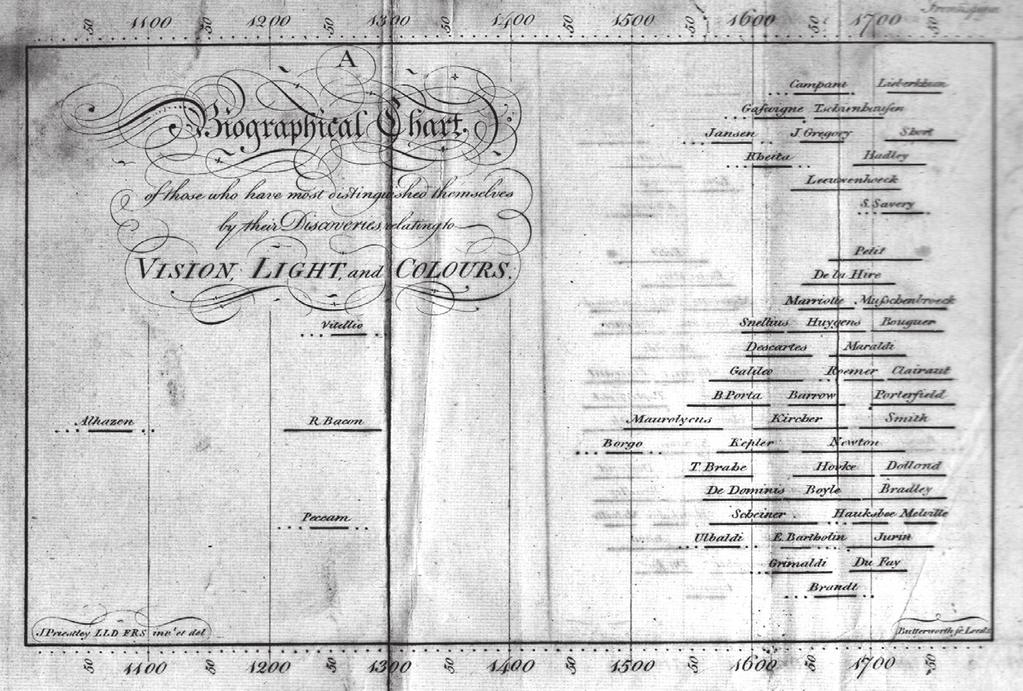 50 1100 50 1200 50 1300 50 1400 50 1500 50 1600 50 1700 50
A
Biographical Chart.
of those who have most distinguished themselves
by their Discoveries relating to
VISION, LIGHT and COLOURS.
Campani Lieberkhun
Gascoigne Tschirnhausen
Jansen J. Gregory Short
Rheita Hadley
Leeuwenhoeck
S. Savery
Petit
De la Hire
Marriotte Musschenbroeck
Vitellio Snellius Huygens Bouguer
Descartes Maraldi
Galileo Roemer Clairaut
B. Porta Barrow Porterfield
Alhazen R. Bacon Maurolycus Kircher Smith
Borgo Kepler Newton
T. Brahe Hooke Dollond
De Dominis Boyle Bradley
Peccam Scheiner Hauksbee Melville
Ulbaldi E. Bartholin Jurin
Grimaldi Du Fay
Brandt
J Priestley LLD FRS inv.' et del Butterworth sc Leeds
50 1100 50 1200 50 1300 50 1400 50 1500 50 1600 50 1700 50